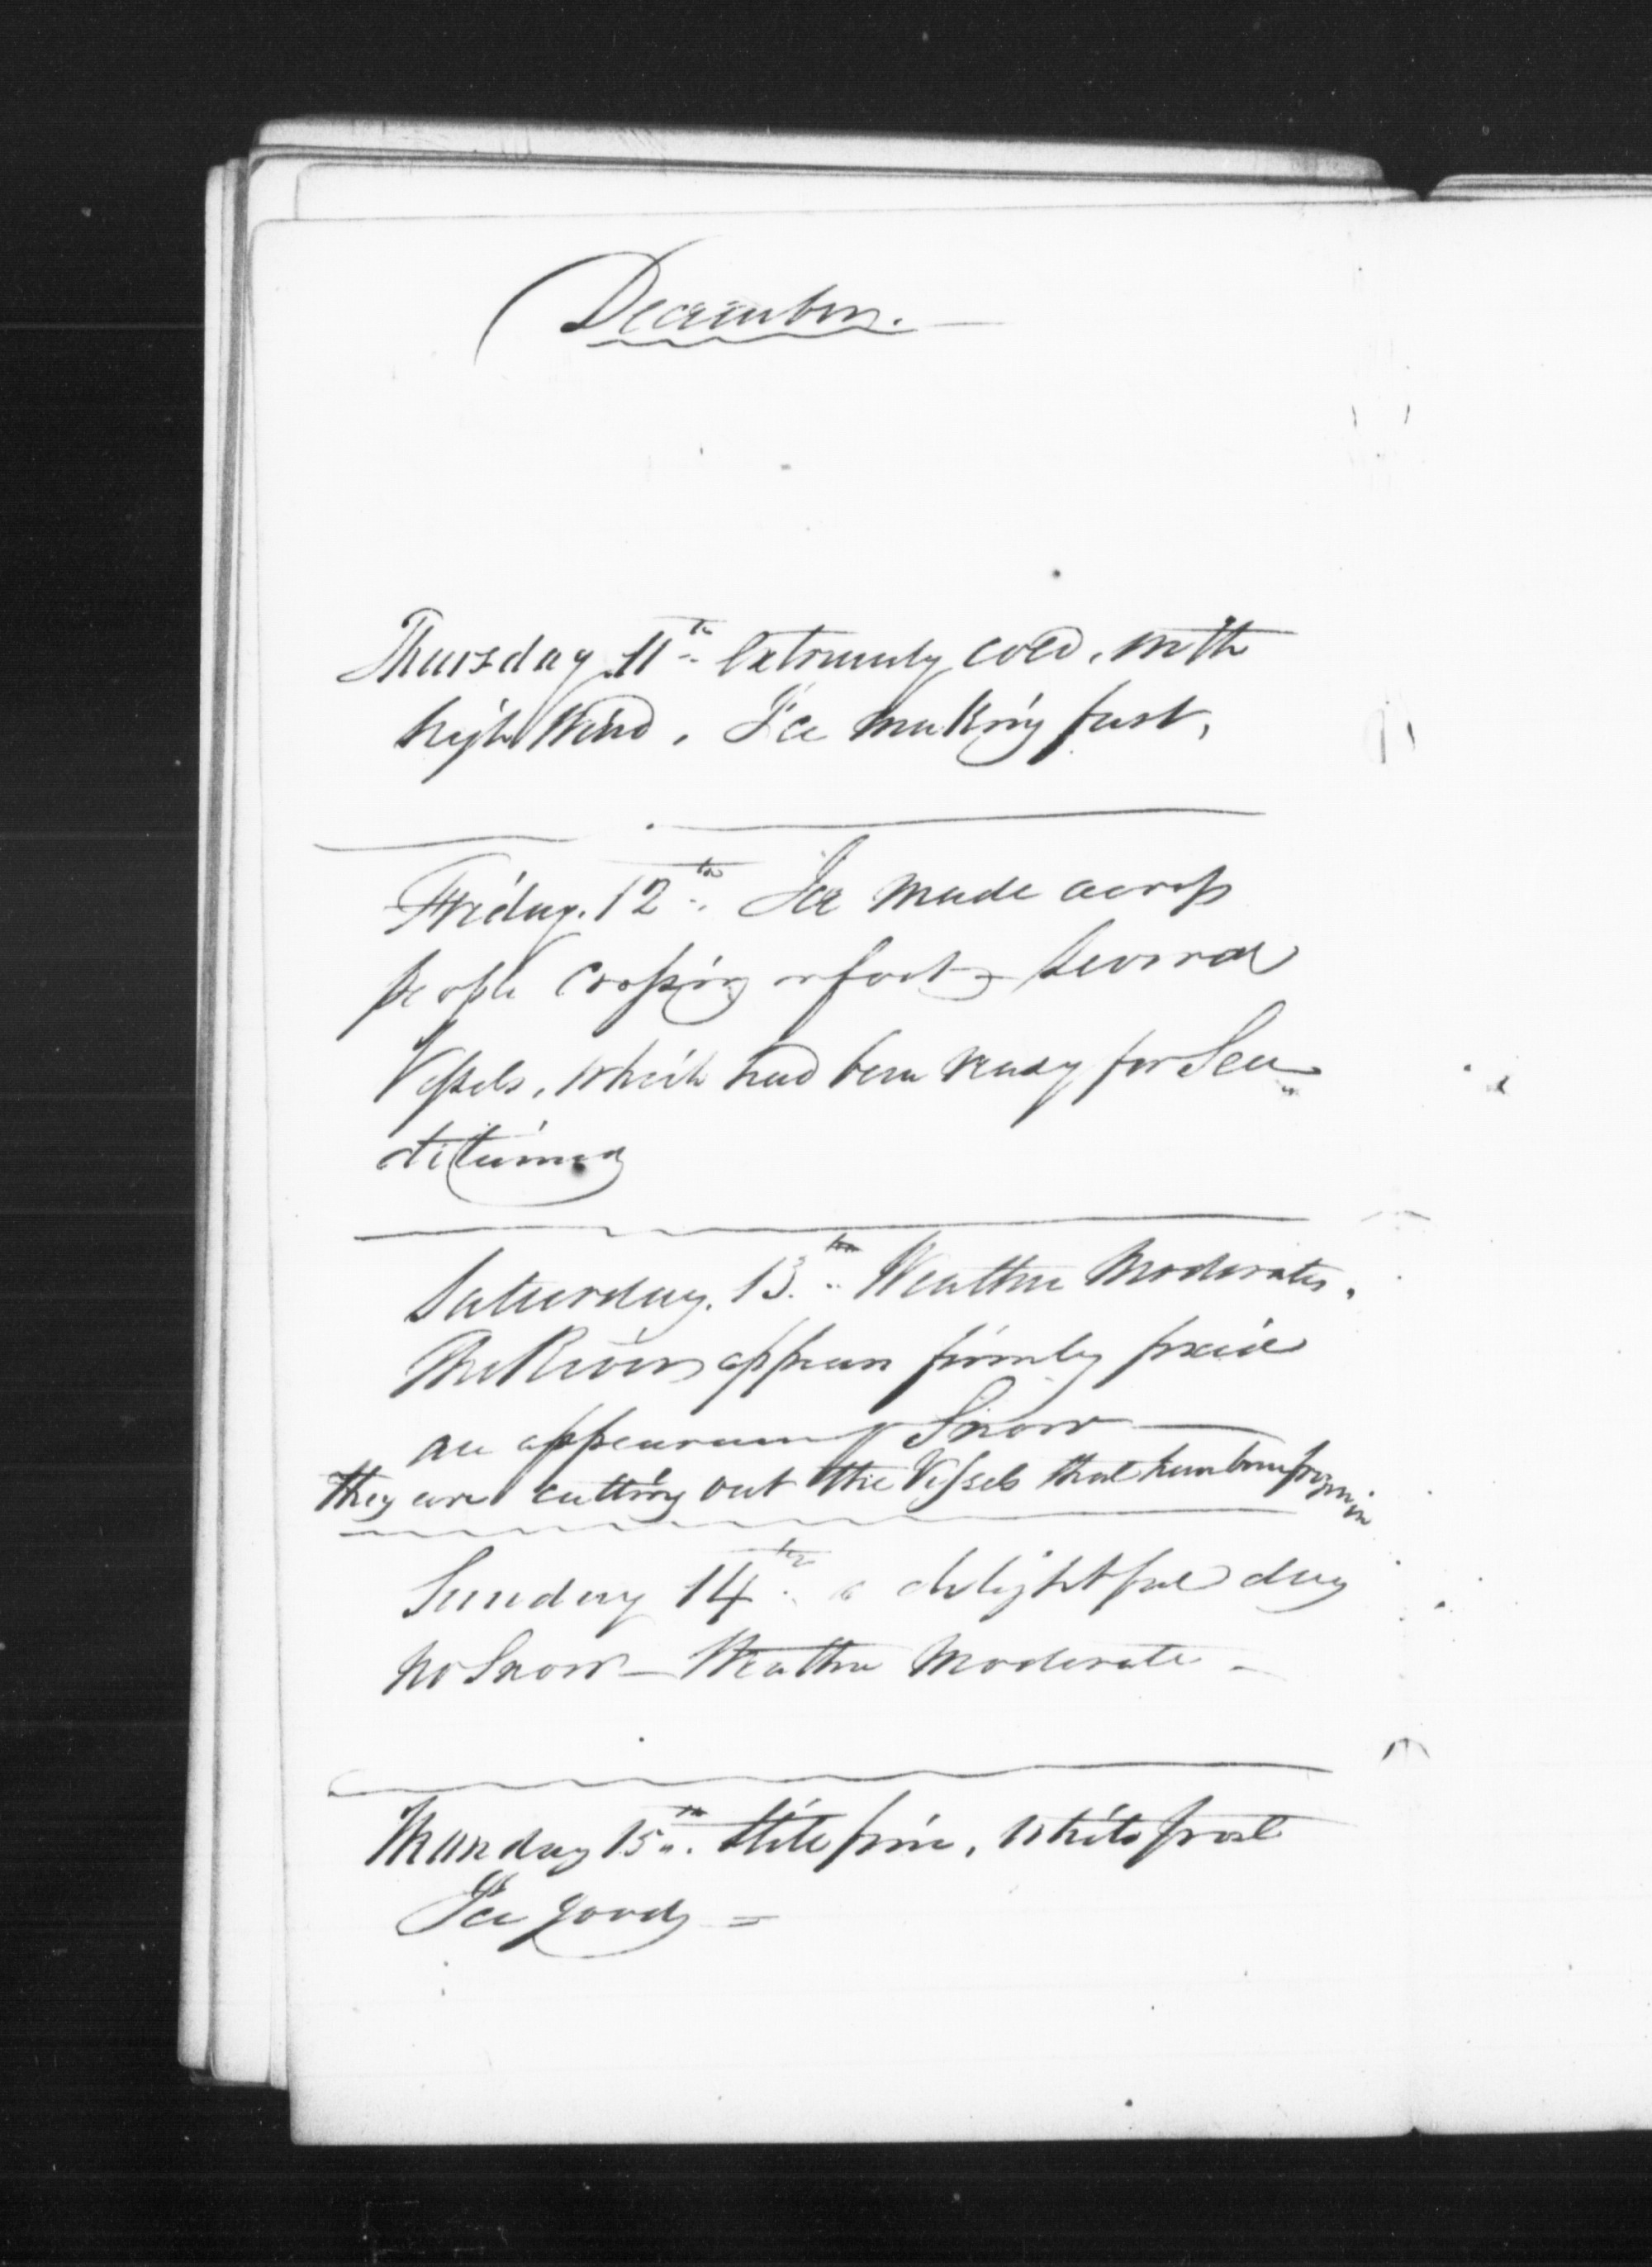 December.
Thursday 11th Extremely cold, with
high Wind, Ice making fast,
Friday. 12th Ice made across
people crossing on foot, Several
Vessels, which had been ready for Sea
detained
Saturday. 13th Weather Moderates.
The River appears firmly
an appearance of Snow
They are cutting out the Vessels that have been frozen in
Sunday 14th a delightful day
No Snow — Weather Moderate —
Monday 15th. Still fine, White frost
Ice good =